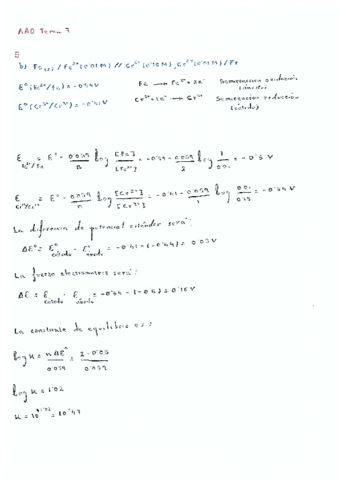 AAO Tema 7
5
b) Fe(s) / Fe²⁺ (0'01M) // Cr³⁺ (0'15M), Cr²⁺ (0'01M) / Pt
E°(Fe²⁺/Fe) = -0'44V Fe → Fe²⁺ + 2e⁻ Semireacción oxidación
E°(Cr³⁺/Cr²⁺) = -0'41V Cr³⁺ + 1e⁻ → Cr²⁺ Semireacción reducción (cátodo)
E Fe²⁺/Fe = E° - 0'059/n log [Fe]/[Fe²⁺] = -0'44 - 0'059/2 log 1/0'01 = -0'5 V
E Cr³⁺/Cr²⁺ = E° - 0'059/n log [Cr²⁺]/[Cr³⁺] = -0'41 - 0'059/1 log 0'01/0'15 = -0'34 V
La diferencia de potencial estándar será:
ΔE° = E° cátodo - E° ánodo = -0'41 - (-0'44) = 0'03 V
La fuerza electromotriz será:
ΔE = E cátodo - E ánodo = - (-0'5) = 0'16 V
La constante de equilibrio es:
log K = nΔE°/0'059 = 2 · 0'03/0'059
log K = 1'02
K = 10^1'02 = 10'47